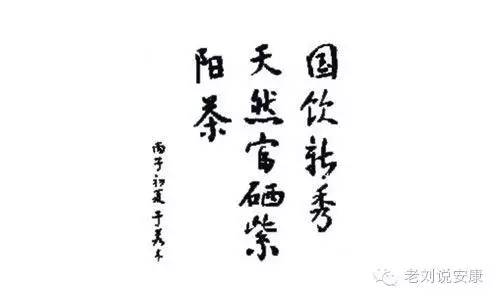 国饮新秀
天然官硒紫
阳茶
丙子初夏 于若木
老刘说安康